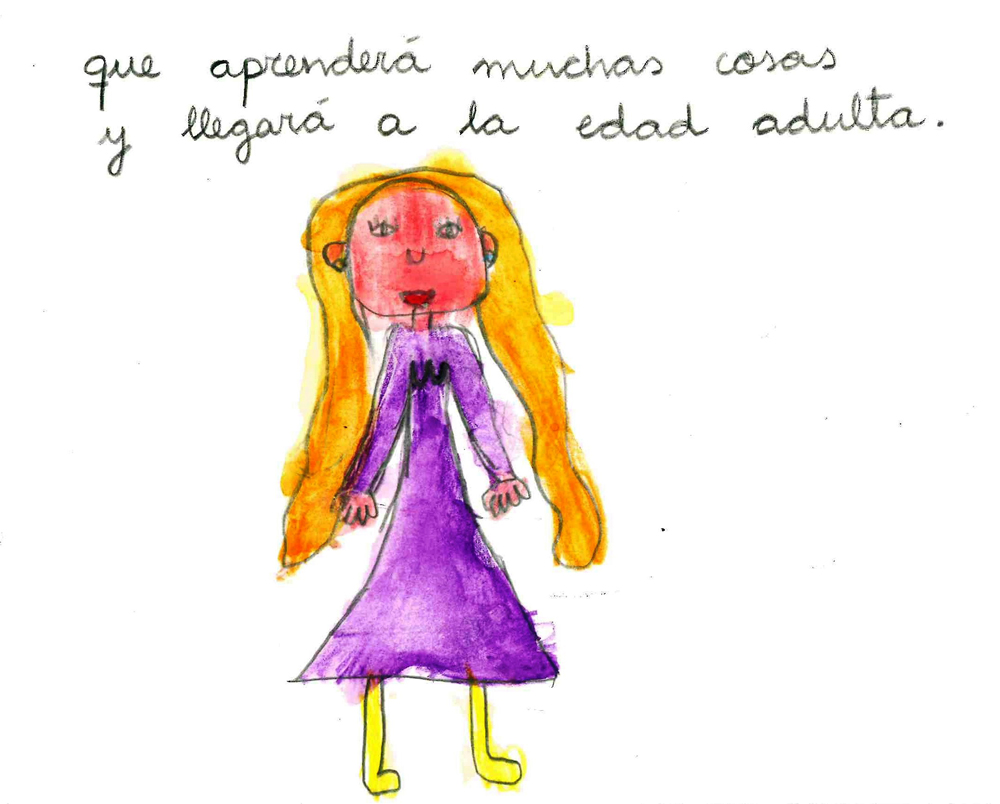 que aprenderá muchas cosas
y llegará a la edad adulta.